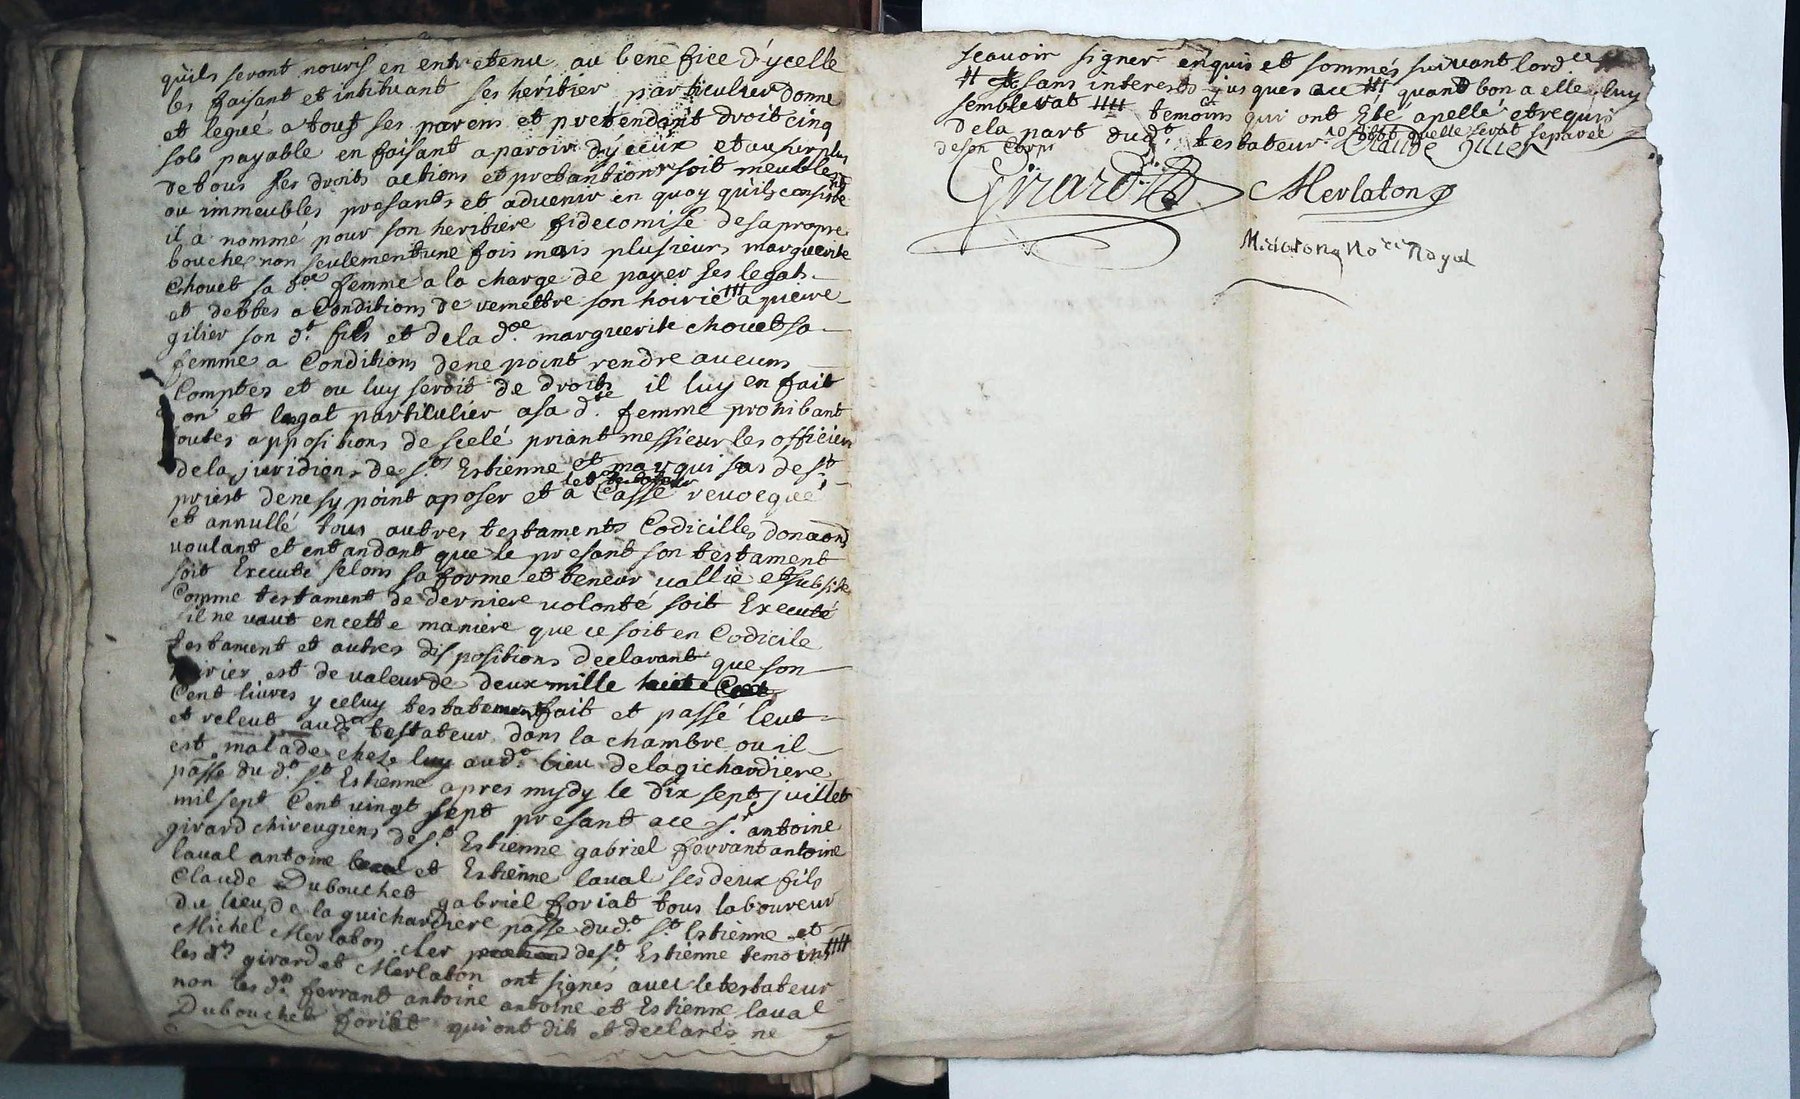 quils seront nouris en entretenu au benefice d'ycelle
les faisant et instituant ses héritier particulier donne
et legué a tous ses parens et pretendant droit cinq
sols payable en faisant aparoir d'yceux et au surplus
de tous ses droits actions et pretantions soit meubles
ou immeubles presants et advenir en quoy quils consiste
il a nommé pour son heritiere fidecomise de sa propre
bouche non seulement une fois mais plusieurs marguerite
Chouet sa dte femme a la charge de payer ses legats
et debtes a Conditions de remettre son hoirie #### a pierre
gilier son dt fils et de la dte marguerite chouet sa
femme a Conditions de ne point rendre aucuns
Comptes et ou luy seroit de droits il luy en fait
don et legat particulier a sa dte femme prohibant
toutes appositions de scelé priant messieur les officiers
de la juridiens de st Estienne et marquisas de st
priest de ne sy point aposer et a Cassé revocqué
led testateur
et annullé tous autres testaments Codicilles donaons
voulant et entandant que le presant son testament
soit Executé selons sa forme et teneur vallie et subsiste
Comme testament de derniere volonté soit Executé
sil ne vaut en cette manière que ce soit en Codicile
testament et autres dispositions declarant que son
hoirier est de valeur de deux mille
Cent livres y celuy testatement fait et passé leut
et releut audt testateur dans la chambre ou il
est malade chez luy audt lieu de la gichardiere
passe du dt st Estienne apres mydy le dix sept juillet
mil sept Cent vingt sept presant a ce sr antoine
girard chireugiens de st Estienne gabriel ferrant antoine
laval antoine et Estienne laval ses deux fils
Claude Dubouchet gabriel foriat tous laboureur
du lieu de la guichardiere passe dudt st Estienne et
Michel Merlaton cler de st Estienne temoins ####
les ds girard et Merlaton ont signés avec le testateur
non les ds ferrant antoine antoine et Estienne laval
Dubouchet foriat qui ont dits et declarés ne
scavoir signer enquis et sommés suivant lordce
# sans interests jusques a ce quand bon a elle luy
semblerat #### temoins qui ont Eté apellé et requis
de la part dudt testateur ou tôt quelle serat separée
de son Corps
Claude Gilier
Girard Merlaton
Merlaton Nore Royal